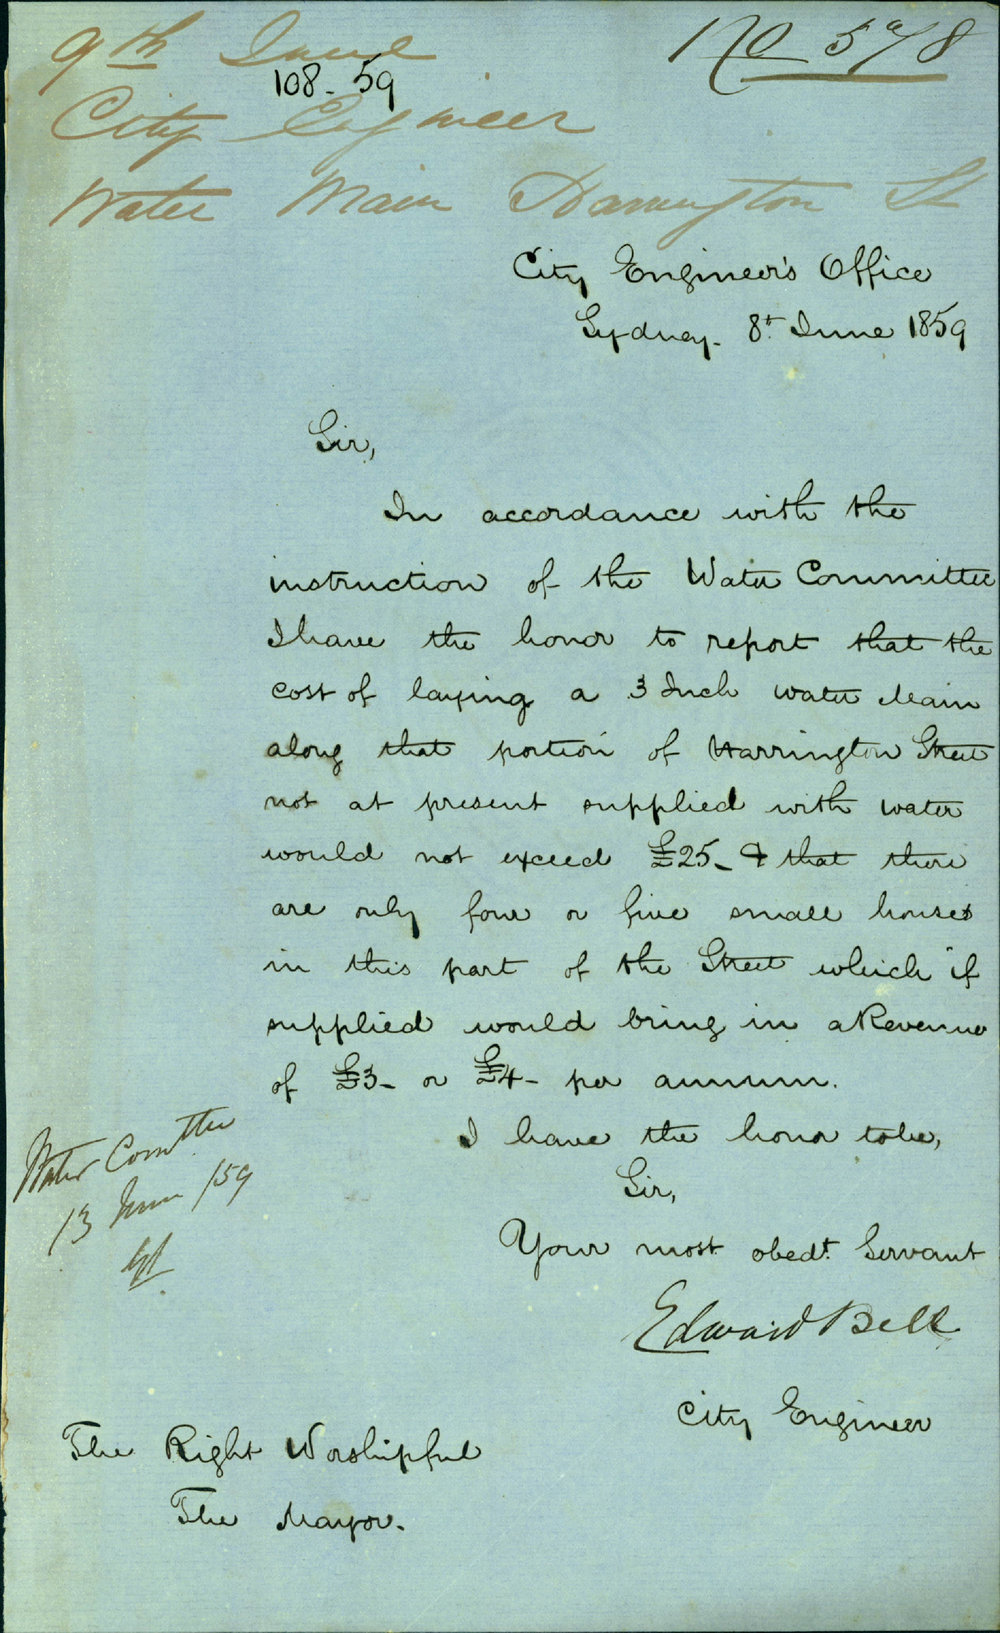 9th June
No 578
108-59
City Engineer
Water Main Harrington St
City Engineer's Office
Sydney. 8t June 1859
Sir,
In accordance with the
instruction of the Water Committee
I have the honor to report that the
cost of laying a 3 Inch water Main
along that portion of Harrington Street
not at present supplied with water
would not exceed £25- & that there
are only four or five small houses
in this part of the Street which if
supplied would bring in a Revenue
of £3- or £4- per annum.
I have the honor to be,
Sir,
Your most obedt. Servant
Edward Bell
City Engineer
Water Comttee
13 June /59
The Right Worshipful
The Mayor.